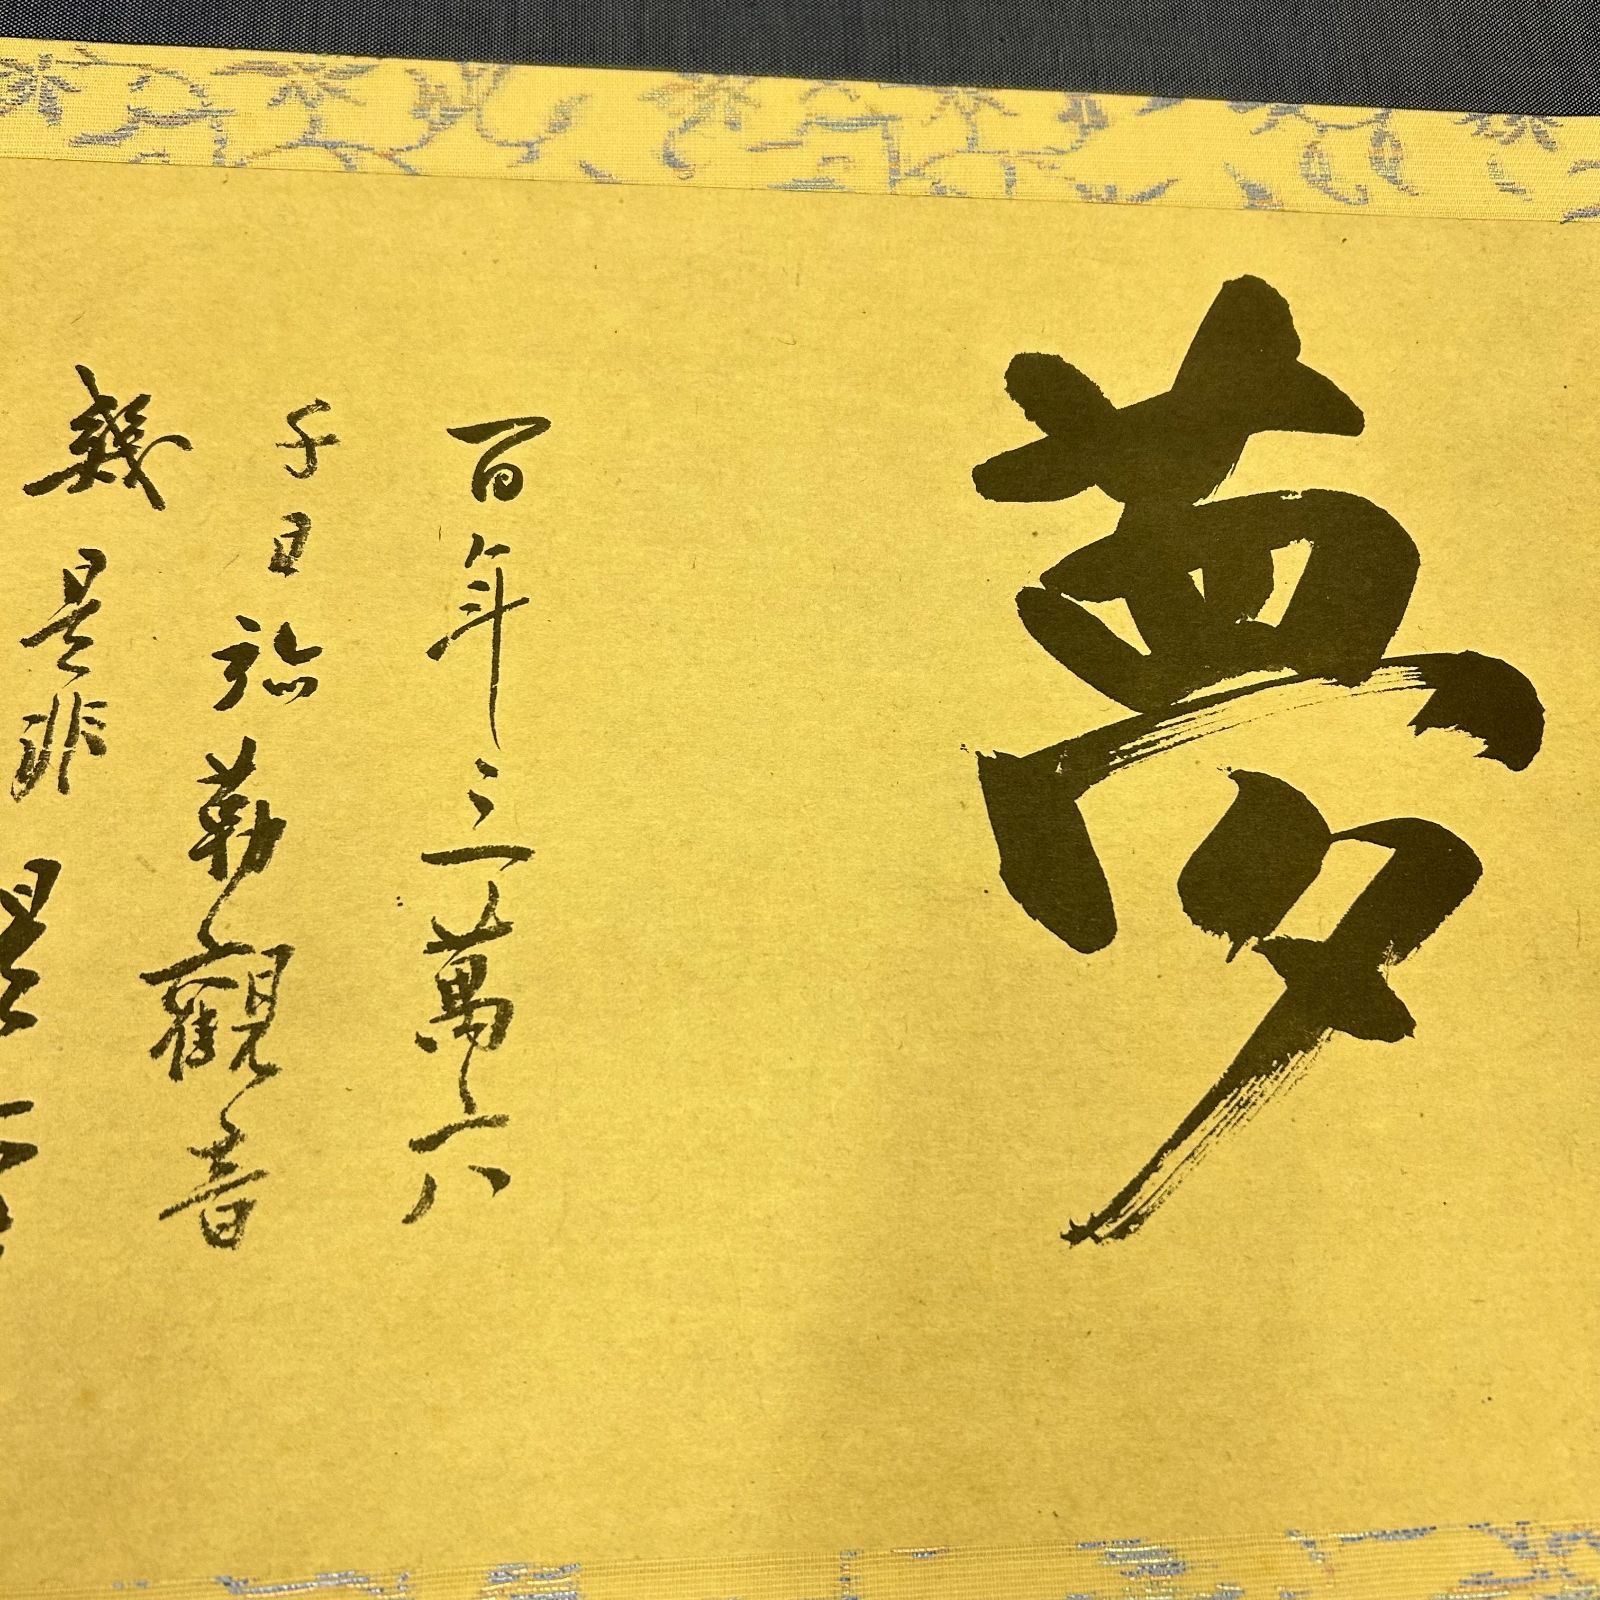 夢
百年三萬六
千日弥勒觀音
幾是非是